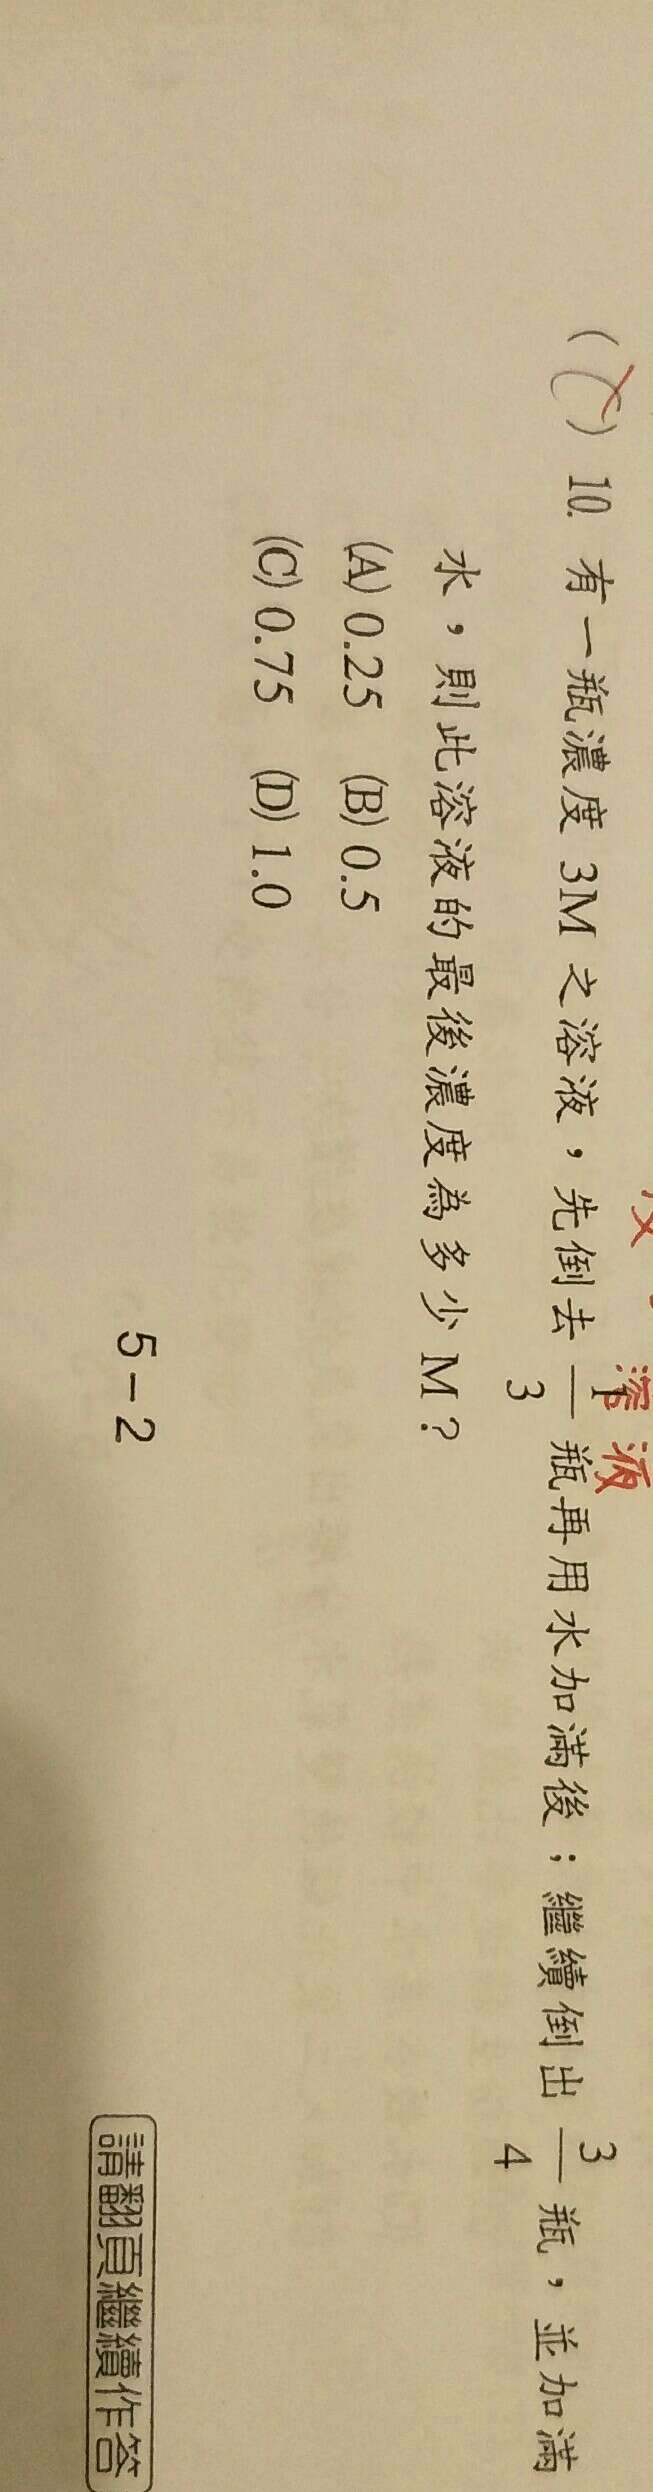 (C) 10. 有一瓶濃度 3M 之溶液，先倒去 1/3 瓶再用水加滿後；繼續倒出 3/4 瓶，並加滿
水，則此溶液的最後濃度為多少 M？
(A) 0.25 (B) 0.5
(C) 0.75 (D) 1.0
5－2
請翻頁繼續作答